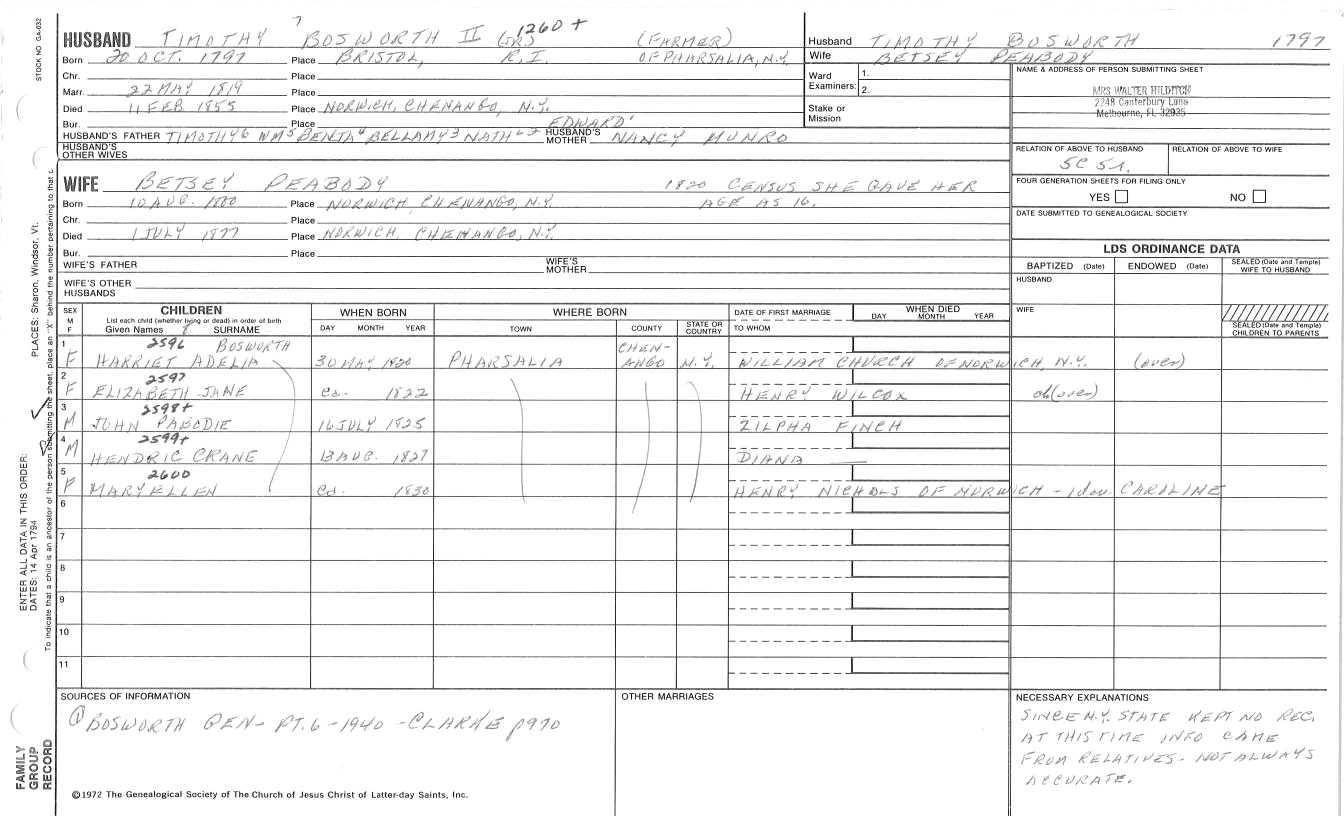 7
HUSBAND TIMOTHY BOSWORTH II (JR) 1260+ (FARMER)
Born 20 OCT. 1797 Place BRISTOL, R.I. OF PHARSALIA, N.Y.
Chr. Place
Marr. 22 MAY 1819 Place
Died 11 FEB 1855 Place NORWICH, CHENANGO, N.Y.
Bur. Place EDWARD'
HUSBAND'S FATHER TIMOTHY6 WM5 BENJA4 BELLAMY3 NATHL2 HUSBAND'S MOTHER NANCY MUNRO
HUSBAND'S OTHER WIVES
Husband TIMOTHY BOSWORTH 1797
Wife BETSEY PEABODY
Ward Examiners: 1. 2.
Stake or Mission
NAME & ADDRESS OF PERSON SUBMITTING SHEET
MRS WALTER HILDITCH
2248 Canterbury Lane
Melbourne, FL 32935
RELATION OF ABOVE TO HUSBAND RELATION OF ABOVE TO WIFE
FOUR GENERATION SHEETS FOR FILING ONLY
YES NO
DATE SUBMITTED TO GENEALOGICAL SOCIETY
WIFE BETSEY PEABODY 1820 CENSUS SHE GAVE HER
Born 10 AUG. 1800 Place NORWICH, CHENANGO, N.Y. AGE AS 16.
Chr. Place
Died 1 JULY 1877 Place NORWICH, CHENANGO, N.Y.
Bur. Place
WIFE'S FATHER WIFE'S MOTHER
WIFE'S OTHER HUSBANDS
LDS ORDINANCE DATA
BAPTIZED (Date) ENDOWED (Date) SEALED (Date and Temple) WIFE TO HUSBAND
HUSBAND
WIFE
SEALED (Date and Temple) CHILDREN TO PARENTS
SEX M F
CHILDREN
List each child (whether living or dead) in order of birth
Given Names SURNAME
WHEN BORN
DAY MONTH YEAR
WHERE BORN
TOWN COUNTY STATE OR COUNTRY
DATE OF FIRST MARRIAGE
TO WHOM
WHEN DIED
DAY MONTH YEAR
1 2596 BOSWORTH CHEN-
F HARRIET ADELIA 30 MAY 1820 PHARSALIA ANGO N.Y. WILLIAM CHURCH OF NORWICH, N.Y. (over)
2 2597
F ELIZABETH JANE Ca. 1822 HENRY WILCOX ch(over)
3 2598+
M JOHN PABODIE 16 JULY 1825 ZILPHA FINCH
4 2599+
M HENDRIC CRANE 13 AUG. 1827 DIANA
5 2600
F MARY ELLEN Ca. 1830 HENRY NICHOLS OF NORWICH - 1 dau. CAROLINE
6
7
8
9
10
11
SOURCES OF INFORMATION
1 BOSWORTH GEN- PT.6 -1940 -CLARKE p970
OTHER MARRIAGES
NECESSARY EXPLANATIONS
SINCE N.Y. STATE KEPT NO REC.
AT THIS TIME INFO CAME
FROM RELATIVES - NOT ALWAYS
ACCURATE.
©1972 The Genealogical Society of The Church of Jesus Christ of Latter-day Saints, Inc.
STOCK NO GA-032
PLACES: Sharon, Windsor, Vt.
ENTER ALL DATA IN THIS ORDER:
DATES: 14 Apr 1794
To indicate that a child is an ancestor of the person submitting the sheet, place an "X" behind the number pertaining to that c
FAMILY
GROUP
RECORD